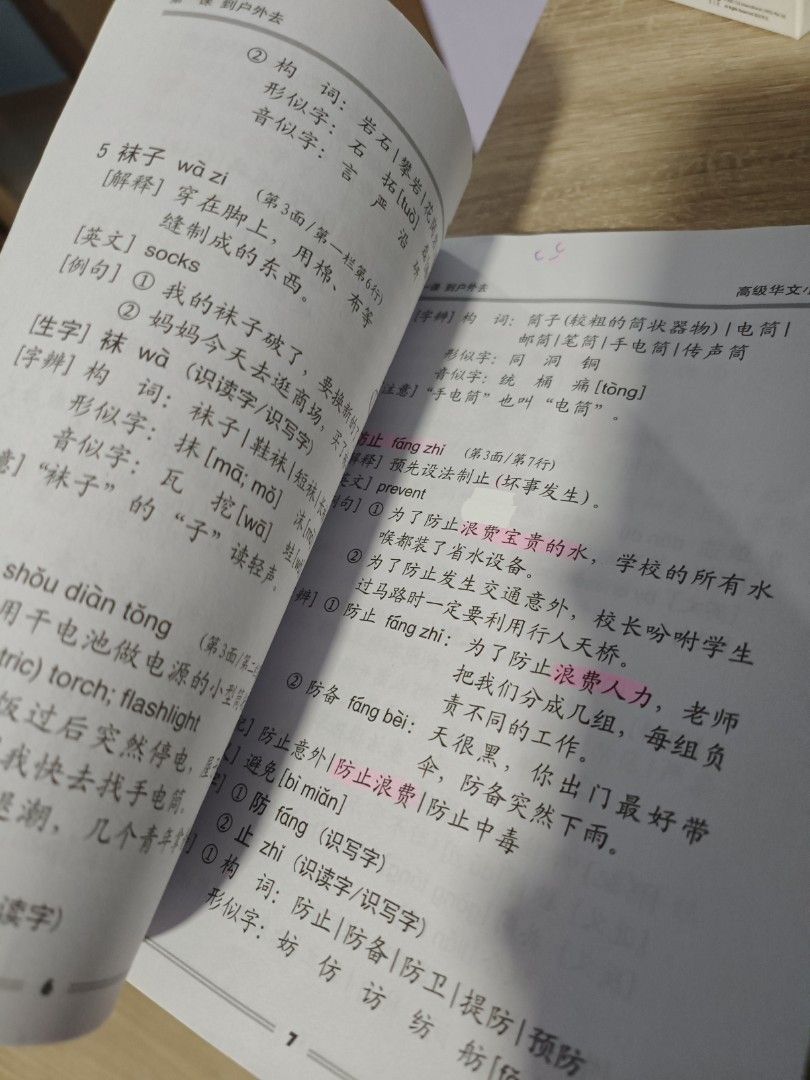 课 到户外去
② 构 词：岩石|攀岩|花
形似字：石 拓[tuò]
音似字：言 严 沿 研
5 袜子 wà zi （第3面/第一栏第6行）
[解释] 穿在脚上，用棉、布等
缝制成的东西。
[英文] socks
[例句] ① 我的袜子破了，要换新的
② 妈妈今天去逛商场，买了
[生字] 袜 wà （识读字/识写字）
[字辨] 构 词：袜子|鞋袜|短袜|长
形似字：抹[mā; mǒ] 沫
音似字：瓦 挖[wā] 蛙
意] “袜子” 的 “子” 读轻声。
shǒu diàn tǒng （第3面/第二
用干电池做电源的小型
tric) torch; flashlight
饭过后突然停电，屋
我快去找手电筒。
是潮，几个青年拿
读字）
6
课 到户外去
高级华文小
[字辨] 构 词：筒子(较粗的筒状器物)|电筒|
邮筒|笔筒|手电筒|传声筒
形似字：同 洞 铜
音似字：统 桶 痛[tòng]
注意] “手电筒” 也叫 “电筒” 。
防止 fáng zhǐ （第3面/第7行）
解释] 预先设法制止(坏事发生)。
英文] prevent
例句] ① 为了防止浪费宝贵的水，学校的所有水
喉都装了省水设备。
② 为了防止发生交通意外，校长吩咐学生
过马路时一定要利用行人天桥。
辨] ① 防止 fáng zhǐ：为了防止浪费人力，老师
把我们分成几组，每组负
责不同的工作。
② 防备 fáng bèi：天很黑，你出门最好带
伞，防备突然下雨。
配] 防止意外|防止浪费|防止中毒
避免[bì miǎn]
① 防 fáng （识写字）
② 止 zhǐ （识读字/识写字）
① 构 词：防止|防备|防卫|提防|预防
形似字：妨 仿 访 纺 舫
7